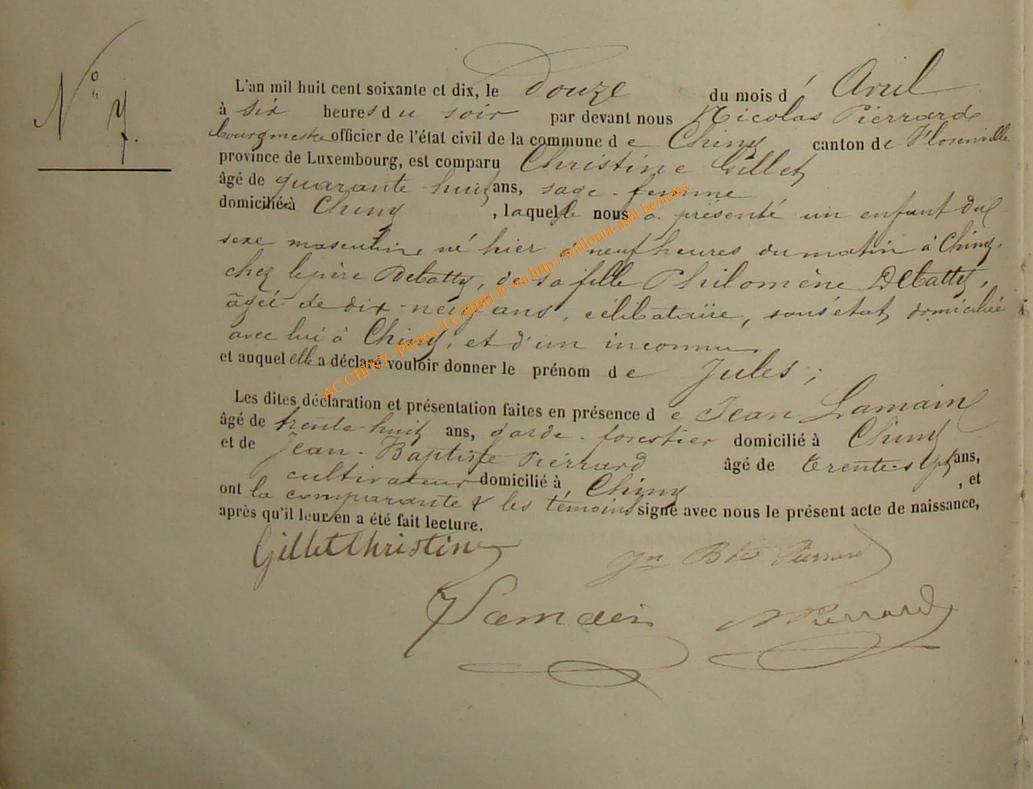 N° 7.
L'an mil huit cent soixante et dix, le douze du mois d' Avril
à six heures du soir par devant nous Nicolas Pierrard
bourgmestre officier de l'état civil de la commune de Chiny canton de Florenville
province de Luxembourg, est comparu Christine Gillet
âgé de quarante-huit ans, sage-femme
domicilié à Chiny, laquelle nous a présenté un enfant du
sexe masculin, né hier à neuf heures du matin à Chiny,
chez le père Debatty, de sa fille Philomène Debatty,
âgée de dix-neuf ans, célibataire, sans état, domiciliée
avec lui à Chiny, et d'un inconnu
et auquel elle a déclaré vouloir donner le prénom de Jules;
Les dites déclaration et présentation faites en présence de Jean Lamain
âgé de trente-huit ans, garde-forestier domicilié à Chiny
et de Jean-Baptiste Pierrard âgé de trente-sept ans,
cultivateur domicilié à Chiny, et
ont la comparante & les témoins signé avec nous le présent acte de naissance,
après qu'il leur en a été fait lecture.
Gillet Christine
Jn Bte Pierrard
N Pierrard